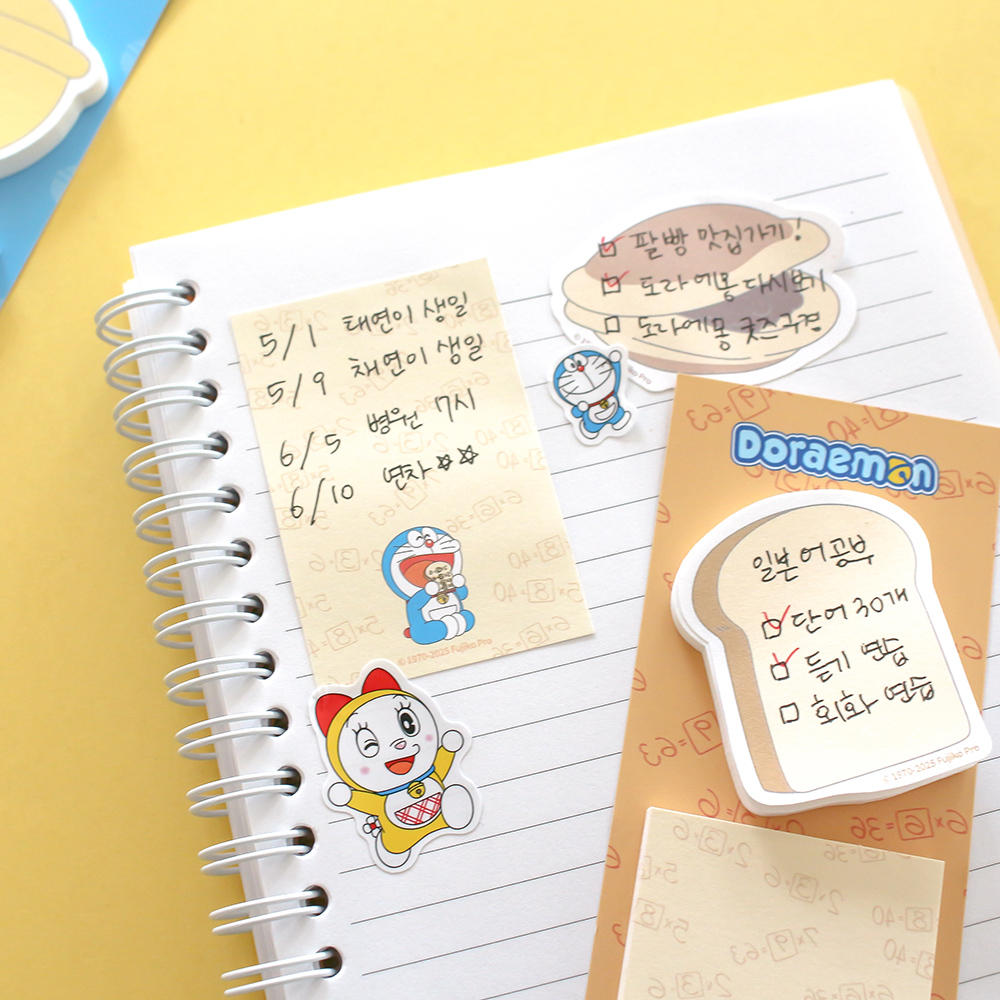 5/1 태연이 생일
5/9 채연이 생일
6/5 병원 7시
6/10 연차 ☆☆
© 1970-2025 Fujiko Pro
팥빵 맛집가기!
도라에몽 다시보기
도라에몽 굿즈구경
ko Pro
Doraemon
일본어 공부
단어 30개
듣기 연습
회화 연습
© 1970-2025 Fujiko Pro